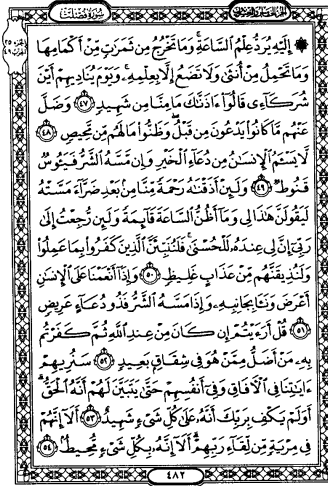 الجزء الخامس والعشرون سورة فصلت
إِلَيْهِ يُرَدُّ عِلْمُ السَّاعَةِ وَمَا تَخْرُجُ مِن ثَمَرَٰتٍ مِّنْ أَكْمَامِهَا
وَمَا تَحْمِلُ مِنْ أُنثَىٰ وَلَا تَضَعُ إِلَّا بِعِلْمِهِۦ وَيَوْمَ يُنَادِيهِمْ أَيْنَ
شُرَكَآءِى قَالُوٓا۟ ءَاذَنَّٰكَ مَا مِنَّا مِن شَهِيدٍ ٤٧ وَضَلَّ
عَنْهُم مَّا كَانُوا۟ يَدْعُونَ مِن قَبْلُ وَظَنُّوا۟ مَا لَهُم مِّن مَّحِيصٍ ٤٨
لَّا يَسْـَٔمُ الْإِنسَٰنُ مِن دُعَآءِ الْخَيْرِ وَإِن مَّسَّهُ الشَّرُّ فَيَـُٔوسٌ
قَنُوطٌ ٤٩ وَلَئِنْ أَذَقْنَٰهُ رَحْمَةً مِّنَّا مِن بَعْدِ ضَرَّآءَ مَسَّتْهُ
لَيَقُولَنَّ هَٰذَا لِى وَمَآ أَظُنُّ السَّاعَةَ قَآئِمَةً وَلَئِن رُّجِعْتُ إِلَىٰ
رَبِّىٓ إِنَّ لِى عِندَهُۥ لَلْحُسْنَىٰ فَلَنُنَبِّئَنَّ الَّذِينَ كَفَرُوا۟ بِمَا عَمِلُوا۟
وَلَنُذِيقَنَّهُم مِّنْ عَذَابٍ غَلِيظٍ ٥٠ وَإِذَآ أَنْعَمْنَا عَلَى الْإِنسَٰنِ
أَعْرَضَ وَنَـَٔا بِجَانِبِهِۦ وَإِذَا مَسَّهُ الشَّرُّ فَذُو دُعَآءٍ عَرِيضٍ
٥١ قُلْ أَرَءَيْتُمْ إِن كَانَ مِنْ عِندِ اللَّهِ ثُمَّ كَفَرْتُم
بِهِۦ مَنْ أَضَلُّ مِمَّنْ هُوَ فِى شِقَاقٍۭ بَعِيدٍ ٥٢ سَنُرِيهِمْ
ءَايَٰتِنَا فِى الْءَافَاقِ وَفِىٓ أَنفُسِهِمْ حَتَّىٰ يَتَبَيَّنَ لَهُمْ أَنَّهُ الْحَقُّ
أَوَلَمْ يَكْفِ بِرَبِّكَ أَنَّهُۥ عَلَىٰ كُلِّ شَىْءٍ شَهِيدٌ ٥٣ أَلَآ إِنَّهُمْ
فِى مِرْيَةٍ مِّن لِّقَآءِ رَبِّهِمْ أَلَآ إِنَّهُۥ بِكُلِّ شَىْءٍ مُّحِيطٌۢ ٥٤
٤٨٢